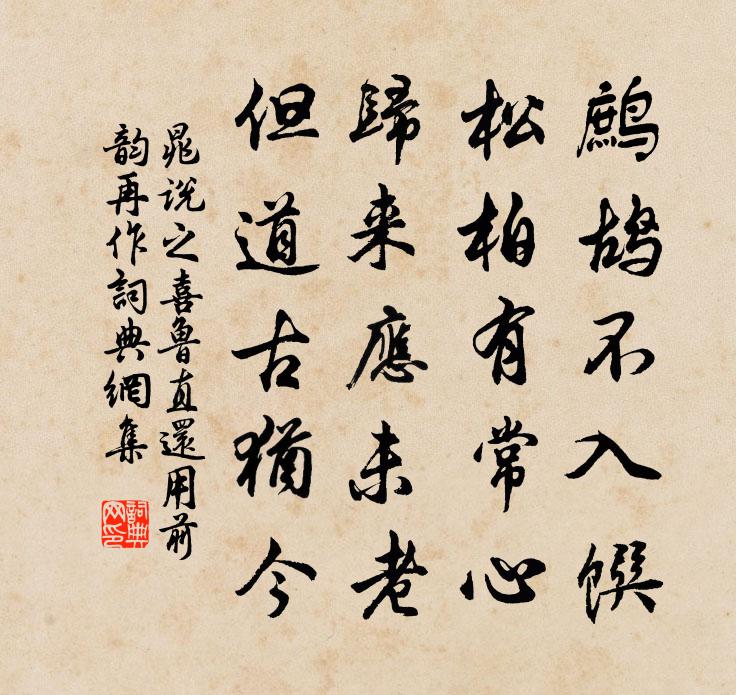 鷓鴣不入饌
松柏有常心
歸来應未老
但道古猶今
晁説之喜魯直還用前
韵再作詞典網集
詞典網印